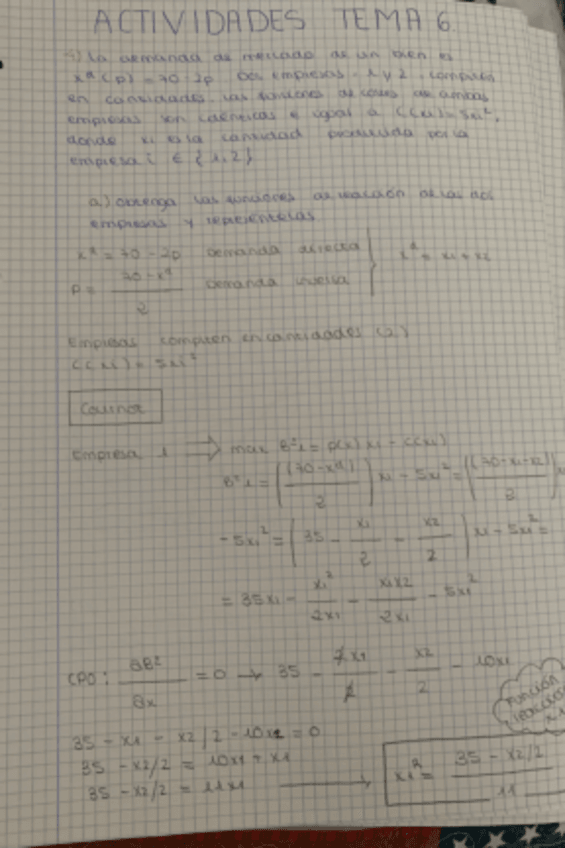 ACTIVIDADES TEMA 6
1) La demanda de mercado de un bien es
x^d (p) = 70 - 2p Dos empresas, 1 y 2, compiten
en cantidades. Las funciones de costes de ambas
empresas son idénticas e igual a C(xi) = 5xi²,
donde xi es la cantidad producida por la
empresa i ∈ {1, 2}
a.) obtenga las funciones de reacción de las dos
empresas y represéntelas
x^d = 70 - 2p Demanda directa
p = (70 - x^d) / 2 Demanda inversa
x^d = x1 + x2
Empresas compiten en cantidades (2)
C(xi) = 5xi²
Cournot
Empresa 1 ⟹ max Bº1 = p(x) x1 - C(x1)
Bº1 = ((70 - x^d) / 2) x1 - 5x1² = ((70 - x1 - x2) / 2) x1
- 5x1² = (35 - x1/2 - x2/2) x1 - 5x1² =
= 35x1 - x1²/2x1 - x1x2/2x1 - 5x1²
CPO: ∂Bº/∂x = 0 → 35 - 2x1/2 - x2/2 - 10x1
35 - x1 - x2/2 - 10x1 = 0
35 - x2/2 = 10x1 + x1
35 - x2/2 = 11x1 → x1^R = (35 - x2/2) / 11
Función
reacción
x1